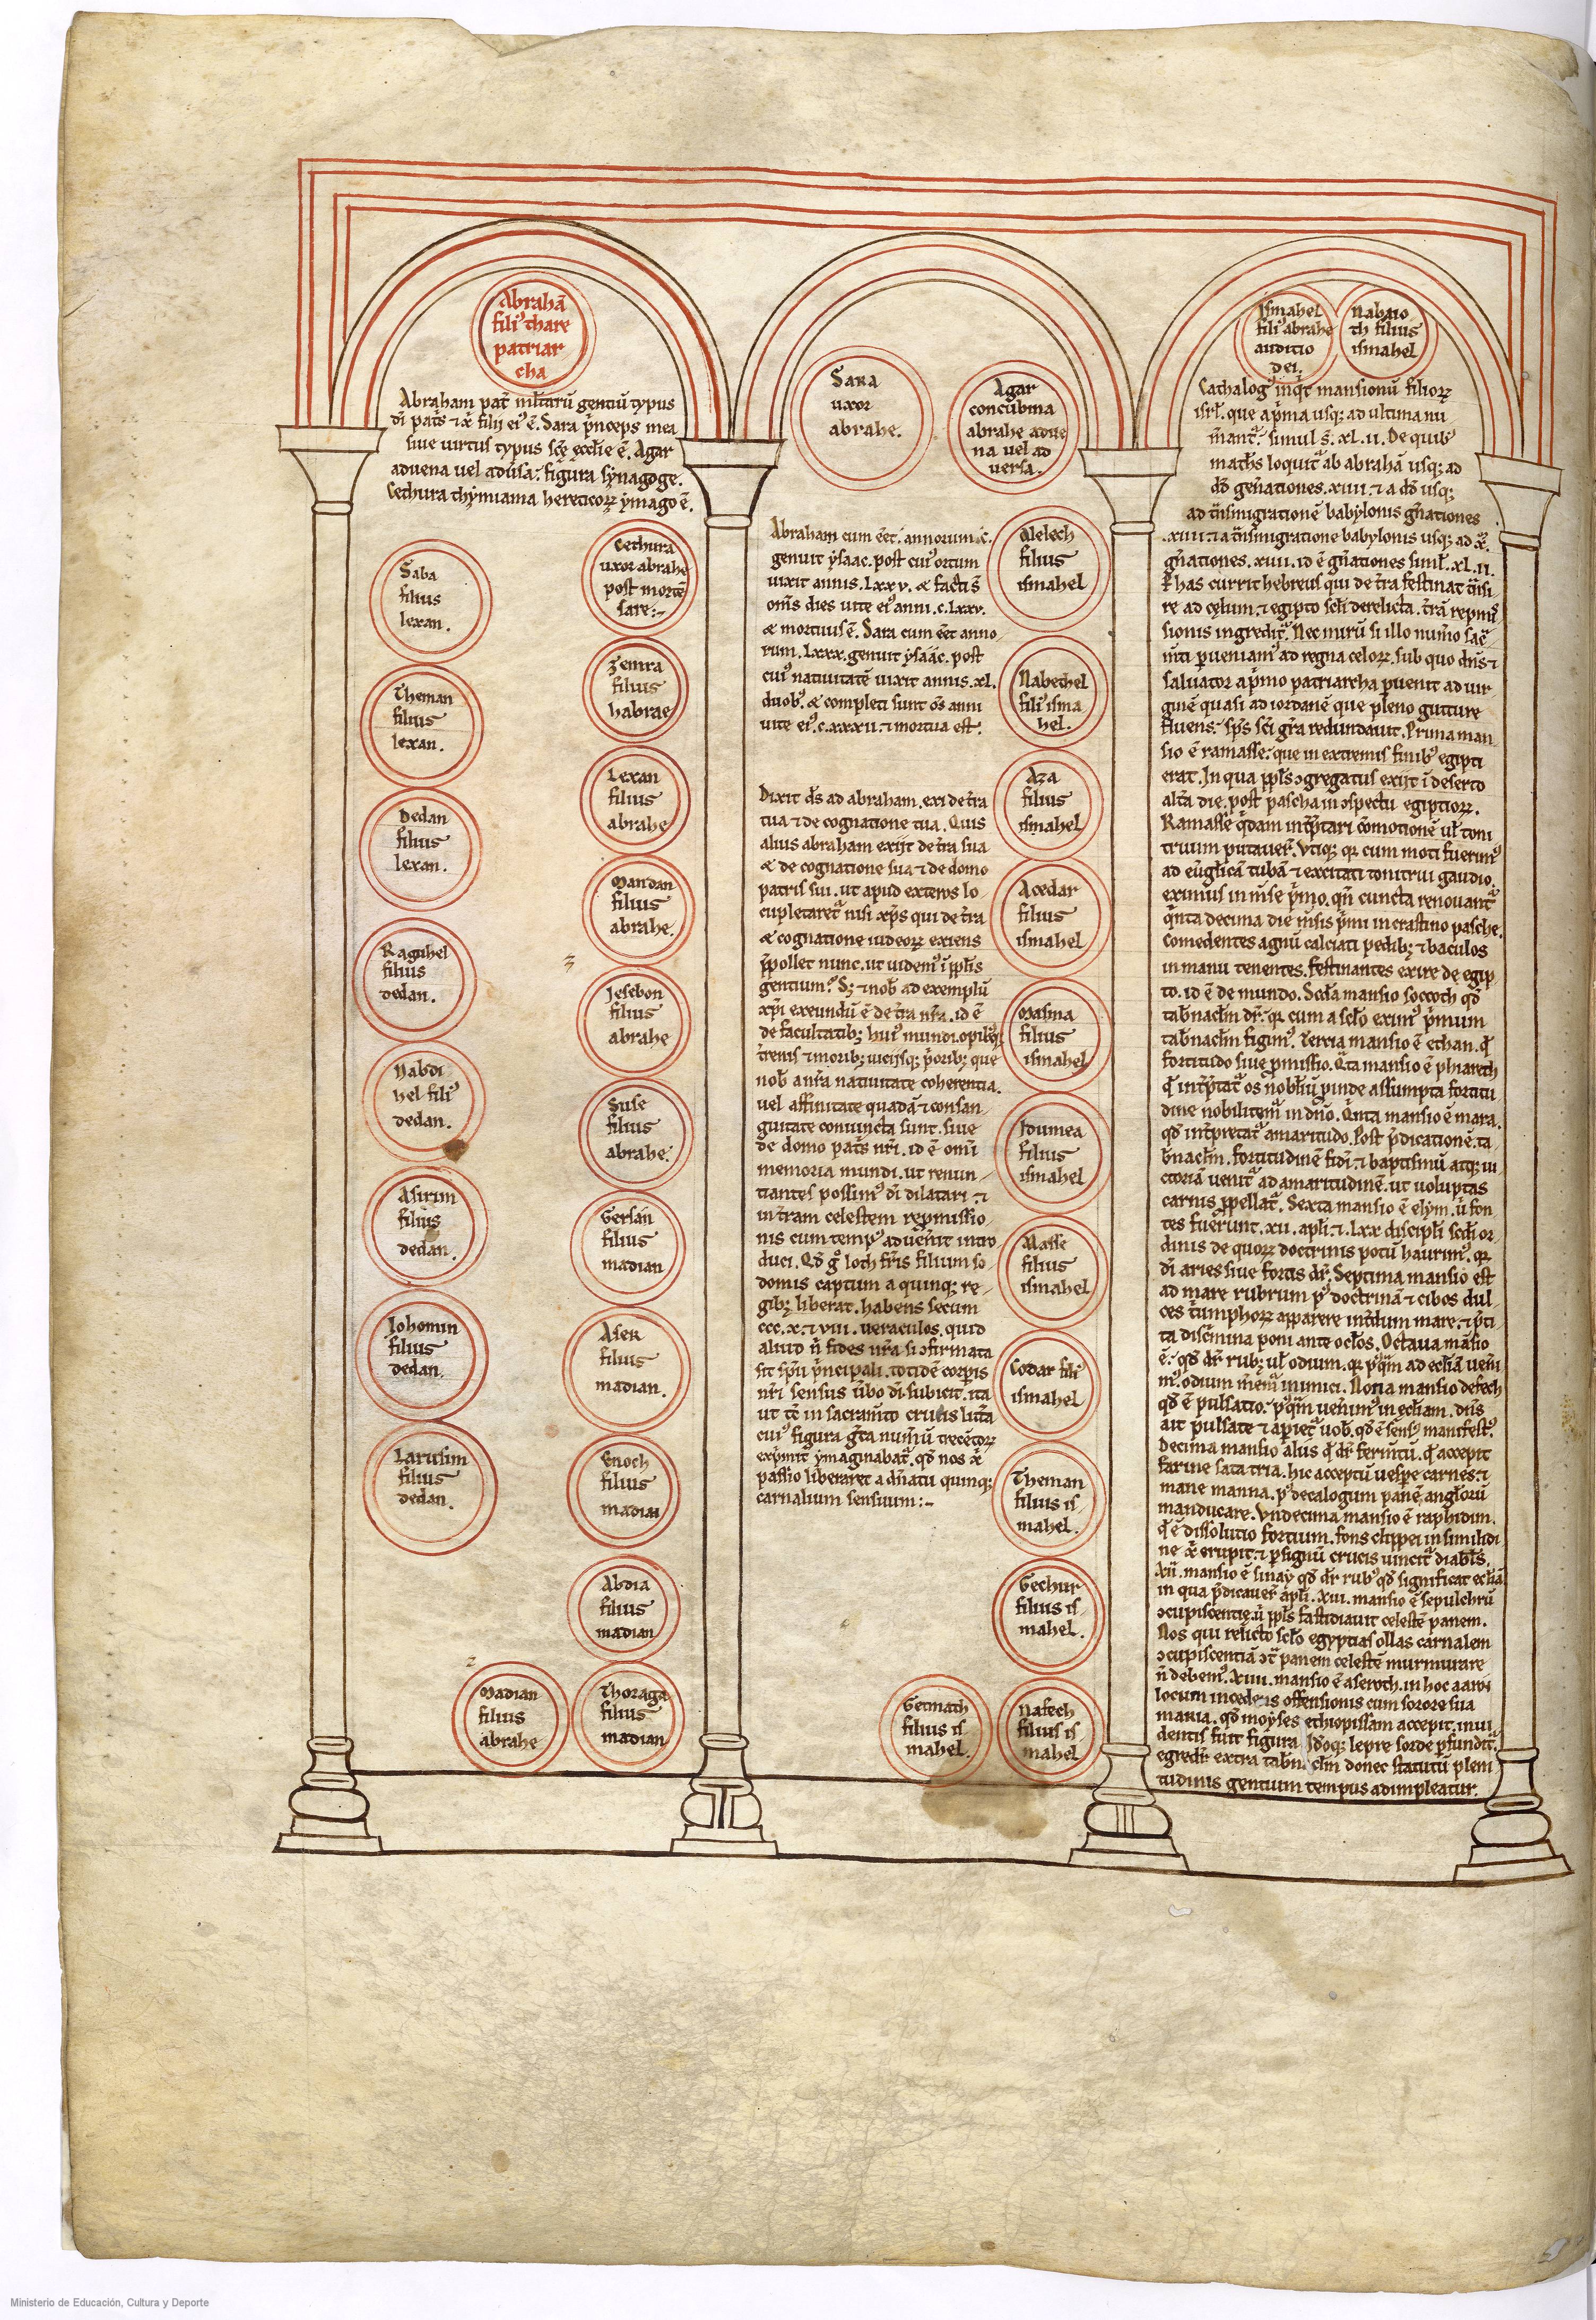 Abrahã
fili⁹ thare
patriar
cha
Abraham pat̃ multarũ gentiũ typus
dĩ pat̃s ⁊ x̃ filii ei⁹ ẽ. Sara p̃nceps mea
siue uirtus typus scẽ ecclie ẽ. Agar
aduena uel adũsa: figura synagoge.
Cethura thymiama hereticorꝝ ymago ẽ.
Saba
filius
lexan.
Theman
filius
lexan.
Dedan
filius
lexan.
Raguhel
filius
dedan.
Nabdi
hel fili⁹
dedan.
Asurim
filius
dedan.
Johomin
filius
dedan.
Latusim
filius
dedan.
Cethura
uxor abrahe
post mortẽ
sare:~
Zemra
filius
habrae
Lexan
filius
abrahe
Mandan
filius
abrahe.
Jesebon
filius
abrahe
Suse
filius
abrahe.
Gersan
filius
madian
Aser
filius
madian.
Enoch
filius
madian
Abdia
filius
madian
Madian
filius
abrahe
Thoraga
filius
madian
Sara
uxor
abrahe.
Agar
concubina
abrahe adue
na uel ad
uersa.
Abraham cum ẽet. annorum .c.
genuit ysaac. post cui⁹ ortum
uixit annis. Lxxv. & facti s̃
om̃s dies uite ei⁹ anni. c. Lxxv.
& mortuus ẽ. Sara cum ẽet anno
rum. Lxxx. genuit ysaac. post
cui⁹ natiuitatẽ uixit annis. xl.
duob⁹. & completi sunt om̃s anni
uite ei⁹. c. xxxii. ⁊ mortua est.
Dixit dñs ad abraham. exi de t̃ra
tua ⁊ de cognatione tua. Quis
alius abraham exiit de t̃ra sua
& de cognatione sua ⁊ de domo
patris sui. ut apud exteros lo
cupletaret̃ nisi xp̃s qui de t̃ra
& cognatione iudeorꝝ exiens
p̃pollet nunc. ut uidem⁹ ĩ pp̃lis
gentium? Sꝫ ⁊ nob̃ ad exemplũ
xp̃i exeundũ ẽ de t̃ra nr̃a. id ẽ
de facultatibꝫ hui⁹ mundi. opibꝫ
t̃renis ⁊ moribꝫ uiciisqꝫ p̃oribꝫ que
nob̃ a nr̃a natiuitate coherentia.
uel affinitate quadã ⁊ consan
guitate coniuncta sunt. siue
de domo pat̃s nr̃i. id ẽ om̃i
memoria mundi. ut renun
tiantes possim⁹ dĩ dilatari ⁊
in t̃ram celestem repmissio
nis cum temp⁹ aduen̄it intro
duci. Qd̃ g̊ loth fr̃is filium so
domis captum a quinqꝫ re
gibꝫ liberat. habens secum
ccc. x. ⁊ viii. ueraculos. quid
aliud ñ fides nr̃a si ↄfirmata
sit sp̃u p̃ncipali. totidẽ corp̃is
nr̃i sensus ũbo dĩ subicit. ita
ut tc̃ in sacram̃to crucis litt̃a
cui⁹ figura g̃ta num̃ũ trecẽtorꝝ
exp̃mit ymaginabat̃. qd̃ nos x̃
passio liberaret a dñatu quinqꝫ
carnalium sensuum:~
Alelech
filius
ismahel
Nabethel
fili⁹ isma
hel.
Aza
filius
ismahel
Acedar
filius
ismahel
Masma
filius
ismahel
Idumea
filius
ismahel
Masse
filius
ismahel
Codar fili⁹
ismahel
Theman
filius is
mahel.
Gethur
filius is
mahel.
Getmath
filius is
mahel.
Nafech
filius is
mahel
Ismahel
fili⁹ abrahe
auditio
dei.
Nabaio
th filius
ismahel
Cathalog⁹ inq̃t mansionũ filiorꝝ
isrl̃. que a p̃ma usqꝫ ad ultima nu
m̃ant̃. simul s̃. xl. ii. De quib⁹
math̃s loquit̃ ab abrahã usqꝫ ad
dd̃ gen̄ationes. xiiii. ⁊ a dd̃ usqꝫ
ad t̃nsmigrationẽ babylonis gn̄ationes
.xiiii. ⁊ a t̃nsmigratione babylonis usqꝫ ad x̃.
gn̄ationes. xiiii. id ẽ gn̄ationes simł. xl. ii.
P has currit hebreus qui de t̃ra festinat t̃nsi
re ad cęlum. ⁊ egipto scl̃i derelicta. t̃rã repmis
sionis ingredit̃. Nec mirũ si illo num̃o sac̃
m̃ti perueniam⁹ ad regna celorꝝ. sub quo dñs ⁊
saluator a p̃mo patriarcha puenit ad uir
ginẽ quasi ad iordanẽ que pleno gutture
fluens. sp̃s sc̃i gr̃a redundauit. Prima man
sio ẽ ramasse. que in extremis finib⁹ egipti
erat. In qua ppl̃s ↄgregatus exiit ĩ deserto
alt̃a die. post pascha in ↄspectu egiptiorꝝ.
Ramasse q̃dam int̃p̃tari cõmotionẽ ul̃ toni
truum putauer̃. Utiqꝫ qr̃ cum moti fuerim⁹
ad eũgl̃icã tubã ⁊ excitati tonitrui gaudio.
eximus in m̃se p̃mo. qñ cuncta renouant̃
q̃nta decima die m̃sis p̃mi in crastino pasche.
comedentes agnũ calciati pedibꝫ ⁊ baculos
in manu tenentes. festinantes exire de egip
to. id ẽ de mundo. Scd̃a mansio soccoth qd̃
tab̃nacl̃m dr̃. qr̃ cum a scl̃o exim⁹ p̃mum
tab̃nacl̃m figim⁹. Tercia mansio ẽ ethan. q̃
fortitudo siue pmissio. Q̃ta mansio ẽ phiareth
q̃ int̃p̃tat̃ os nobl̃iũ pinde assumpta fortitu
dine nobilitem̃ in dño. Q̃nta mansio ẽ mara.
qd̃ int̃pretat̃ amaritudo. Post p̃dicationẽ. ta
b̃nacl̃m. fortitudinẽ fidĩ. ⁊ baptismũ atqꝫ ui
ctoriã uenit̃ ad amaritudinẽ. ut uoluptas
carnis ppellat̃. Sexta mansio ẽ elym. ũ fon
tes fuerunt. xii. apl̃i. ⁊. Lxx discipl̃i scd̃i or
dinis de quorꝝ doctrinis potũ haurim⁹. qr̃
dĩ aries siue fortis dr̃. Septima mansio est
ad mare rubrum p⁹ doctrinã ⁊ cibos dul
ces t̃umphorꝝ apparere int̃dum mare. ⁊ p̃ti
ta disc̃mina poni ante ocl̃os. Octaua mãsio
ẽ. qd̃ dr̃ rub⁹ ul̃ odium. qr̃ p⁹q̃m ad eccl̃iã ueni
m⁹. odium m̃em̃ inimici. Nona mansio defech
qd̃ ẽ pulsatio. p⁹q̃m uenim⁹ in eccl̃iam. dñs
ait pulsate ⁊ apiet̃ uob̃. qd̃ ẽ sens⁹ manifest⁹.
Decima mansio alus q̃ dr̃ ferm̃tũ. q̃ accepit
farine sata tria. hic acceptũ uesp̃e carnes. ⁊
mane manna. p⁹ decalogum panẽ angl̃orũ
manducare. Undecima mansio ẽ raphidim.
q̃ ẽ dissolutio fortium. fons clippei in similidi
ne x̃ erupit. ⁊ p signũ crucis uincit̃ diabl̃s.
xii. mansio ẽ sinay qd̃ dr̃ rub⁹ qd̃ significat eccl̃iã
in qua p̃dicauer̃ apl̃i. xiii. mansio ẽ sepulchrũ
ↄcupiscentie. ũ ppl̃s fastidiauit celestẽ panem.
Nos qui relicto scl̃o egyptias ollas carnalem
ↄcupiscentiã ↄt̃ panem celestẽ murmurare
ñ debem⁹. xiiii. mansio ẽ aseroth. in hoc aaron
locum incedens offensionis cum sorore sua
maria. qd̃ moyses ethiopissam accepit. inui
dentis fuit figura. Idoqꝫ lepre sorde pfundit̃.
egredit̃ extra tab̃nacl̃m donec statutũ pleni
tudinis gentium tempus adimpleatur.
Ministerio de Educación, Cultura y Deporte